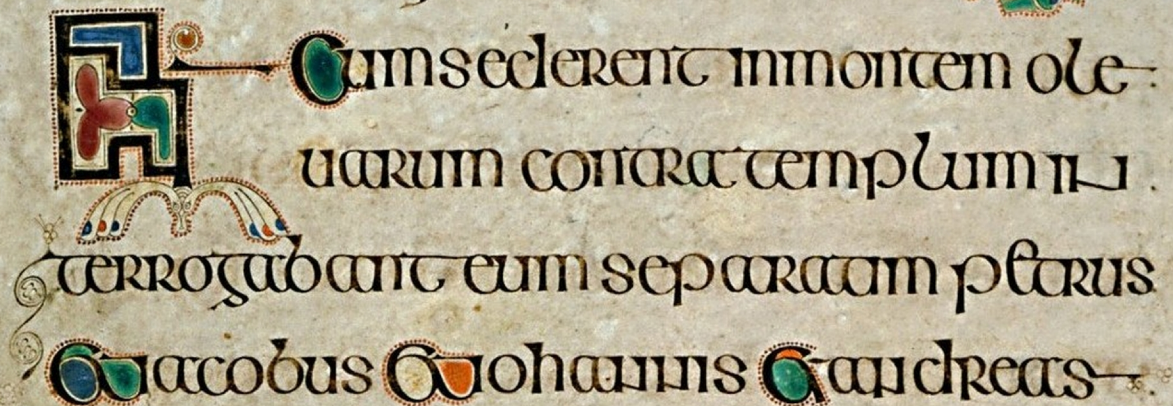 Et cumsederent inmontem ole
uarum contra templum in
terrogabant eum separatim petrus
et iacobus et iohannis et andreas